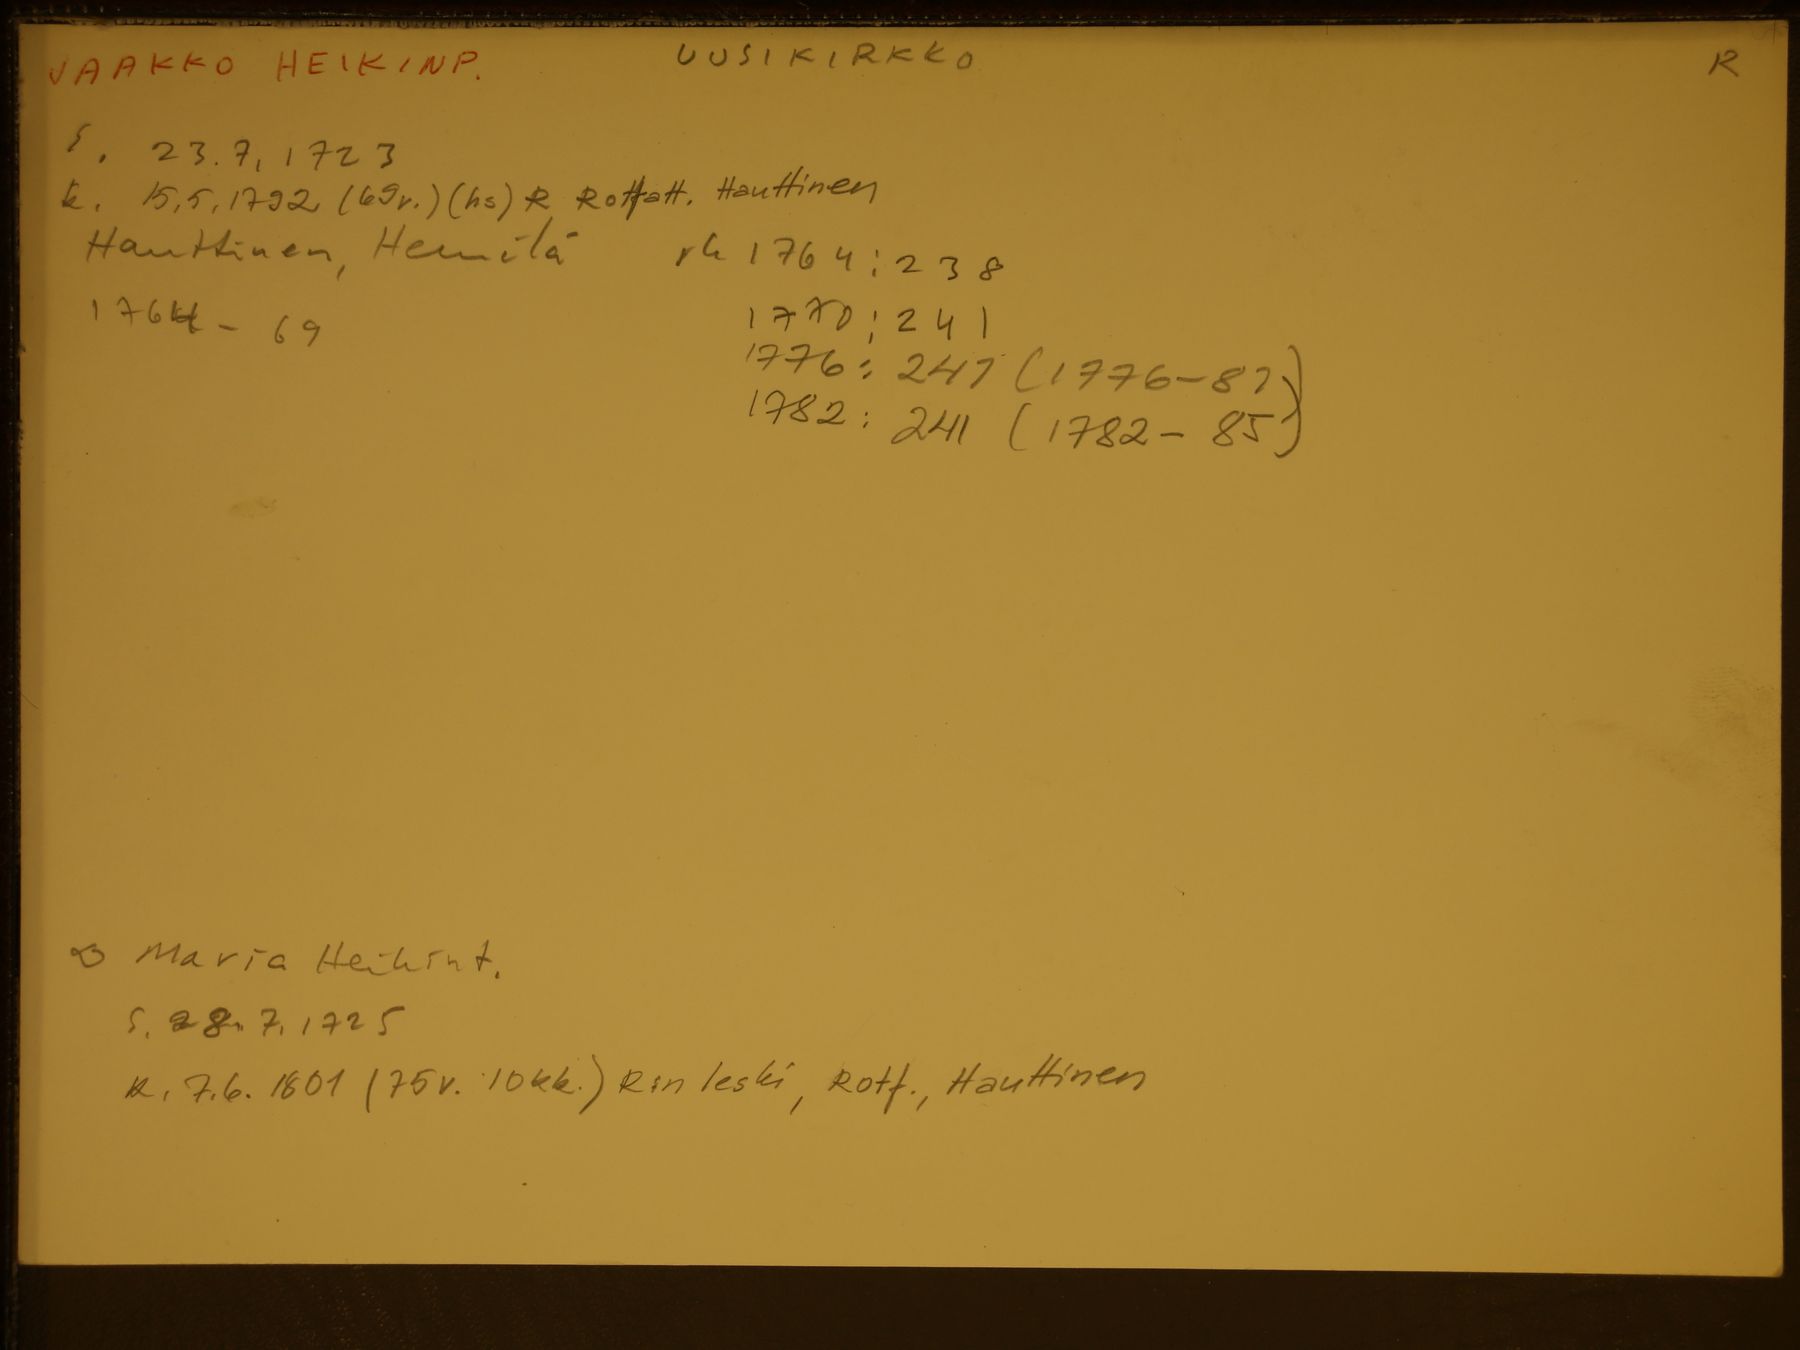 JAAKKO HEIKINP. UUSIKIRKKO R
s. 23.7.1723
k. 15.5.1792 (69v.) (hs) R Rottott. Hauttinen
Hauttinen, Hemilä rk 1764:238
1764-69 1770:241
1776: 241 (1776-81)
1782: 241 (1782-85)
∞ Maria Heikint.
s. 28.7.1725
k. 7.6.1801 (75v. 10kk.) R:n leski, Rotf., Hauttinen